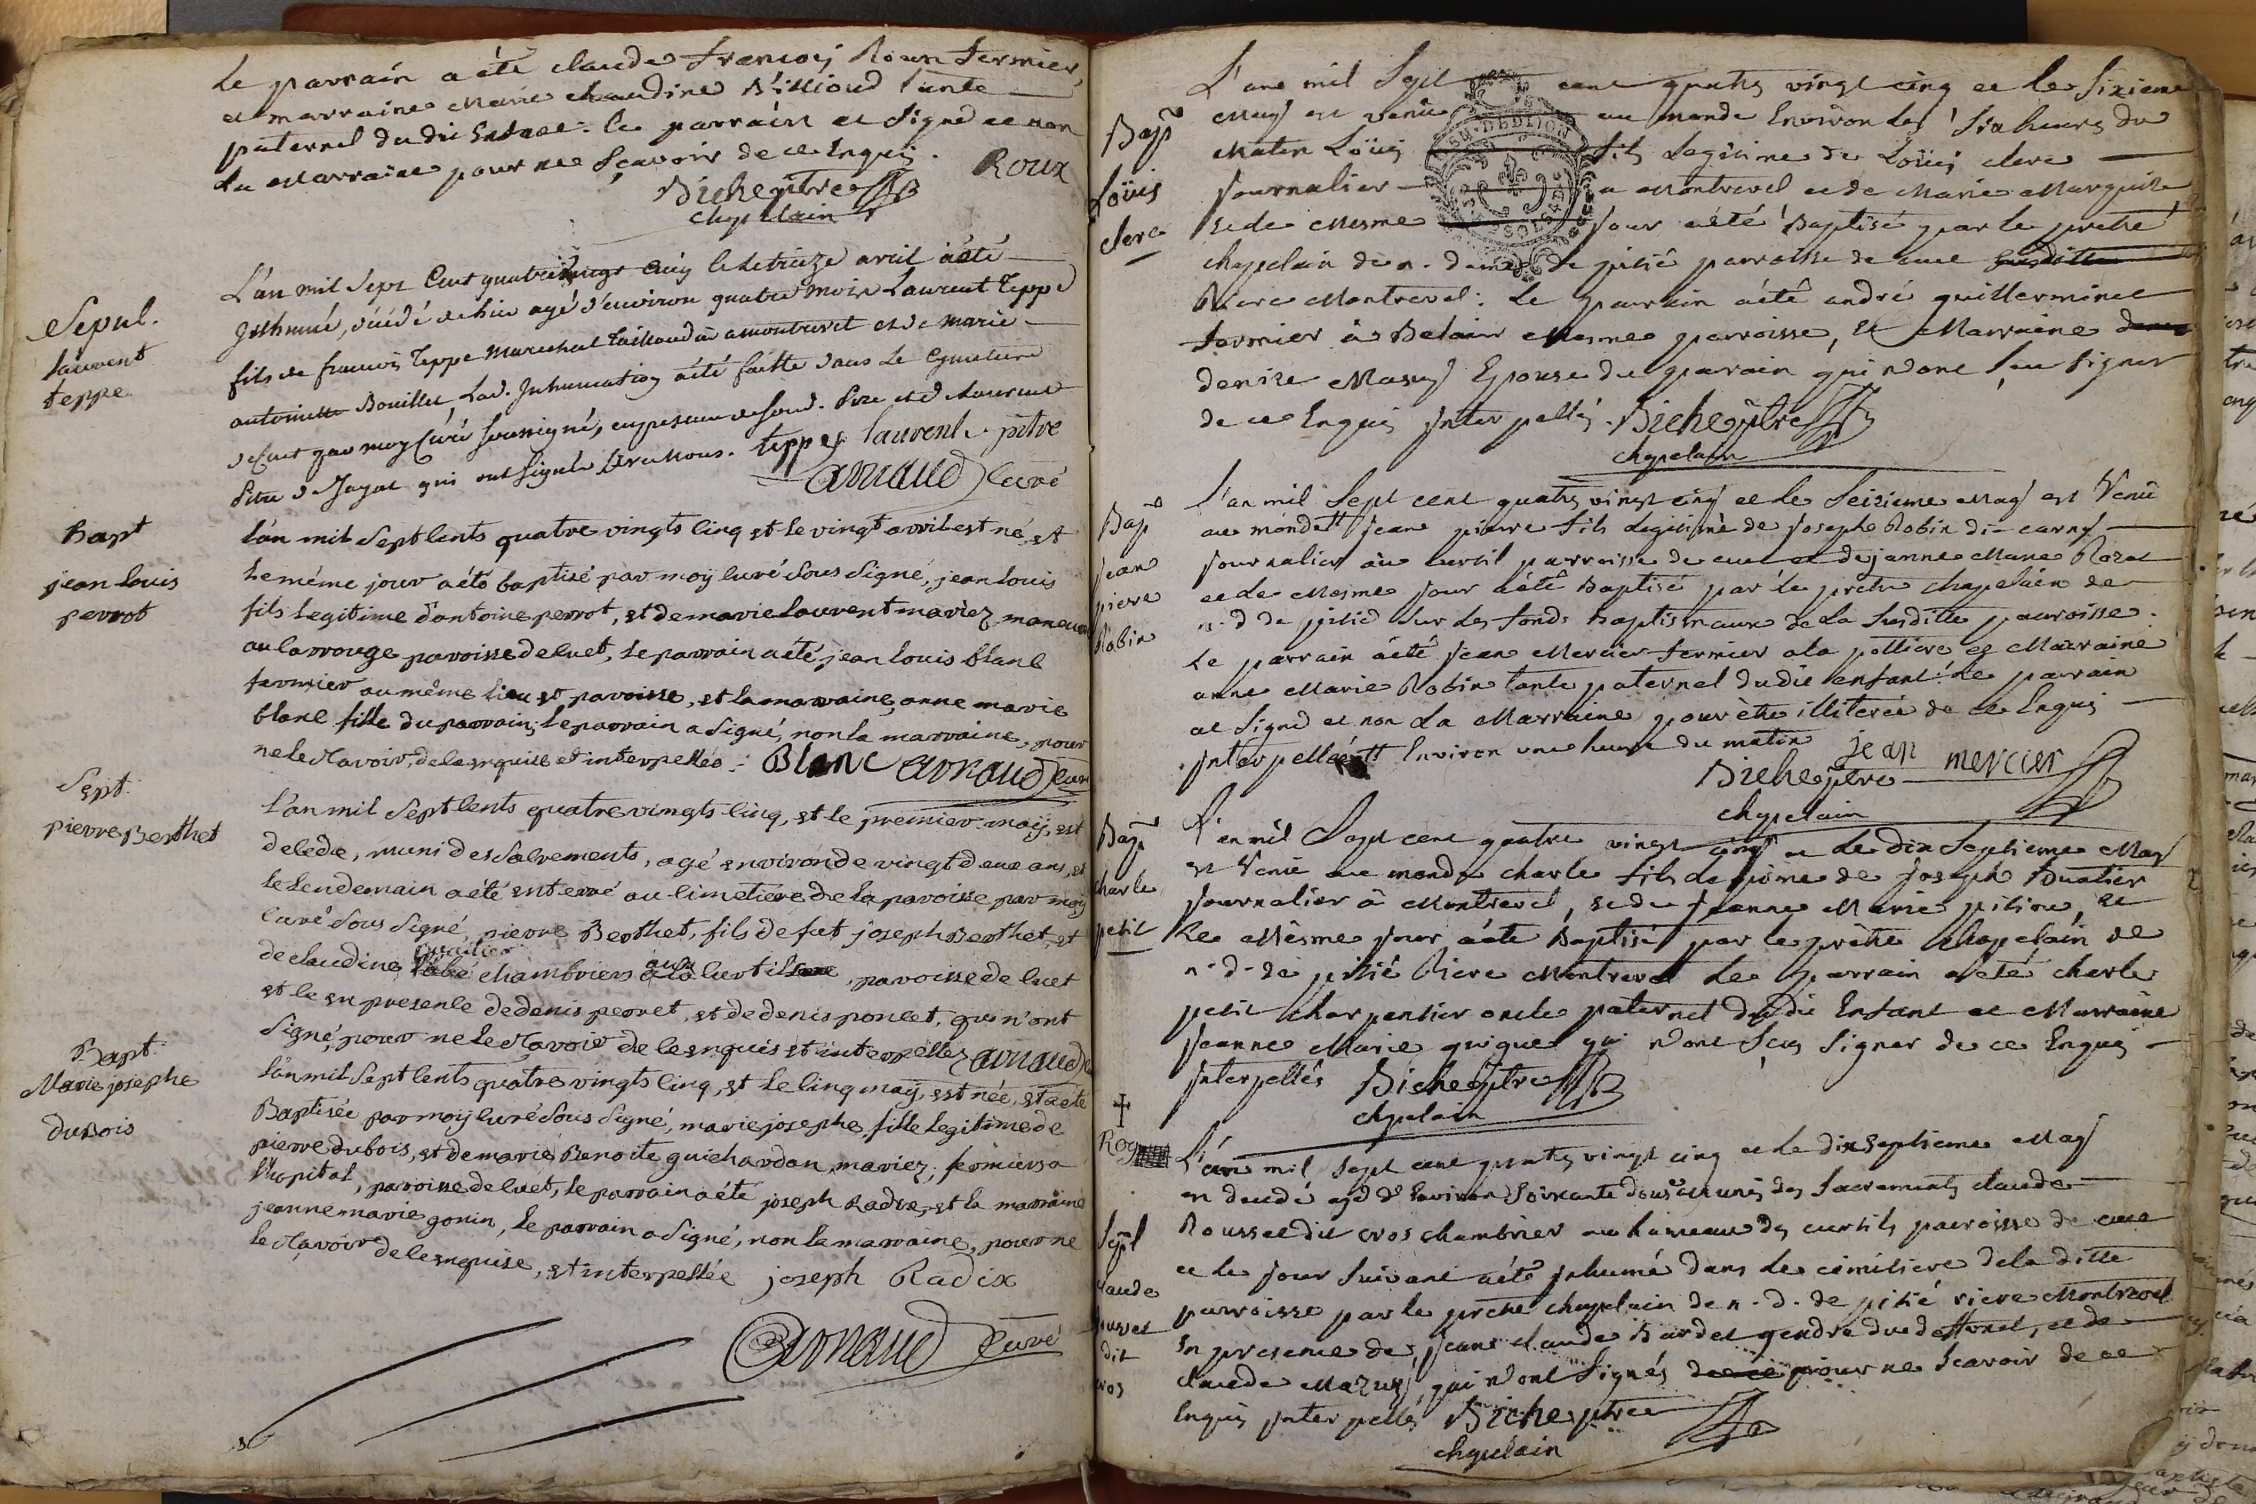 Le parrain a été claude francois Roux fermier,
et marraine Marie claudine Billioud tante
paternel dudit Enfant. le parrain at signé et non
La Marraine pour ne sçavoir de ce Enquis. Roux
Biche ptre
chapelain
Sepul.
laurent
teppe
L'an mil sept Cent quatre vingt cinq le treize avril a été
Inhumé, décédé de hier agé d'environ quatre mois Laurent Teppe
fils de francois Teppe Marechal Taillandier a montrevel et de marie
antoinette Bouillet, Lad. Inhumation a été faitte dans Le Cymetiere
de Cuet par moy Curé soussigné, en presence de
Pitre de Jayat qui ont signé avec Nous. teppe laurent pitre
arnaud Curé
Bapt
jean louis
perrot
l'an mil Sept Cents quatre vingts Cinq et le vingt avril est né, et
le même jour a été baptisé par moy Curé Sous Signé, jean louis
fils Legitime d'antoine perrot, et de marie laurent mariez,
au Carrouge paroisse de Cuet, le parrain a été, jean louis blanc
fermier au même lieu et paroisse, et la marraine, anne marie
blanc fille du parrain; le parrain a signé, non la marraine, pour
ne le sçavoir, de ce enquise et interpellée. Blanc arnaud Curé
Sept.
pierre Berthet
L'an mil Sept Cents quatre vingts Cinq, et le premier may, est
decedé, muni des Sacrements, agé environ de vingt deux ans, et
le lendemain a été enterré au Cimetiere de la paroisse par moy
Curé Sous Signé, pierre Berthet, fils de fut joseph Berthet, et
de claudine chambriers aux Curtils, paroisse de Cuet
et ce en presence de denis perret, et de denis poncet, qui n'ont
Signé, pour ne le sçavoir de ce enquis et interpellez arnaud
Bapt.
Marie josephe
duBois
L'an mil Sept Cents quatre vingts Cinq, et le Cinq may, est née, et a été
Baptisée par moy Curé Sous Signé, marie josephe, fille legitime de
pierre dubois, et de marie Benoite guichardan, mariez, fermiers a
l'hopital, paroisse de Cuet, le parrain a été joseph Radix, et la marraine
jeanne marie gonin, le parrain a Signé, non la marraine, pour ne
le sçavoir de ce enquise, et interpellée joseph Radix
arnaud Curé
Bapt
Loüis
clerc
L'ane mil Sept cent quatre vingt cinq et le sixieme
May est venu au monde Environ les six heures du
Matin Loüis fils Legitime de Loüis clerc
journalier a Montrevel et de Marie Marguite
et le Mesme jour a été Baptisé par le pretre
chapelain de n. dame de pitié parroisse de cuet
Riere Montrevel: Le parrain a été andré guillerminet
fermier à Belair Mesme parroisse, et Marraine
denise Massuy Epouse du parain qui n'ont sçu signer
de ce Enquis Interpellés. Biche ptre
chapelain
Bap
jean
pierre
Robin
L'an mil Sept cent quatre vingt cinq et le Seizieme May est Venu
au monde jean pierre fils Legitime de joseph Robin dit carny
journalier au curtil parroisse de cuet et de janne Marie Rozet
et le Mesme jour a été Baptisé par le pretre chapelain de
n. d de pitié sur les fonds Baptismaux de La susditte parroisse.
Le parrain a été jean Mercier fermier a la pottiere et Marraine
anne Marie Robin tante paternel dudit enfant. le parrain
at signé et non La Marraine pour être illiterée de ce Enquis
Interpellée Environ une heure du matin jean mercier
Biche ptre
chapelain
Bap
charle
petit
L'an mil Sept cent quatre vingt cinq et Le dix Septieme May
est Venu au monde charle fils Legitime de joseph
journalier à Montrevel, et de jeanne Marie, et
Le Mesme jour a été Baptisé par le prêtre chapelain de
n-d-de pitié Riere Montrevel Le parrain a été charle
petit charpentier oncle paternel du dit Enfant et Marraine
jeanne Marie guigue qui n'ont sçu signer de ce Enquis
Interpellés Biche ptre
chapelain
Sepl
claude
roussel
dit
cros
L'an mil sept cent quatre vingt cinq et le dixseptieme May
en decedé agé d'Environ soixante douse munis des Sacrements claude
Roussel dit cros chambrier au hameau des curtils parroisse de cuet
et le jour suivant a été Inhumé dans Le cimitiere de la ditte
parroisse par le pretre chapelain de n-d-de pitié riere Montrevel
En presence de jean claude Bardet gendre du deffunct, et de
claude Mazuy, qui n'ont signés pour ne scavoir de ce
Enquis Interpellés Biche ptre
chapelain